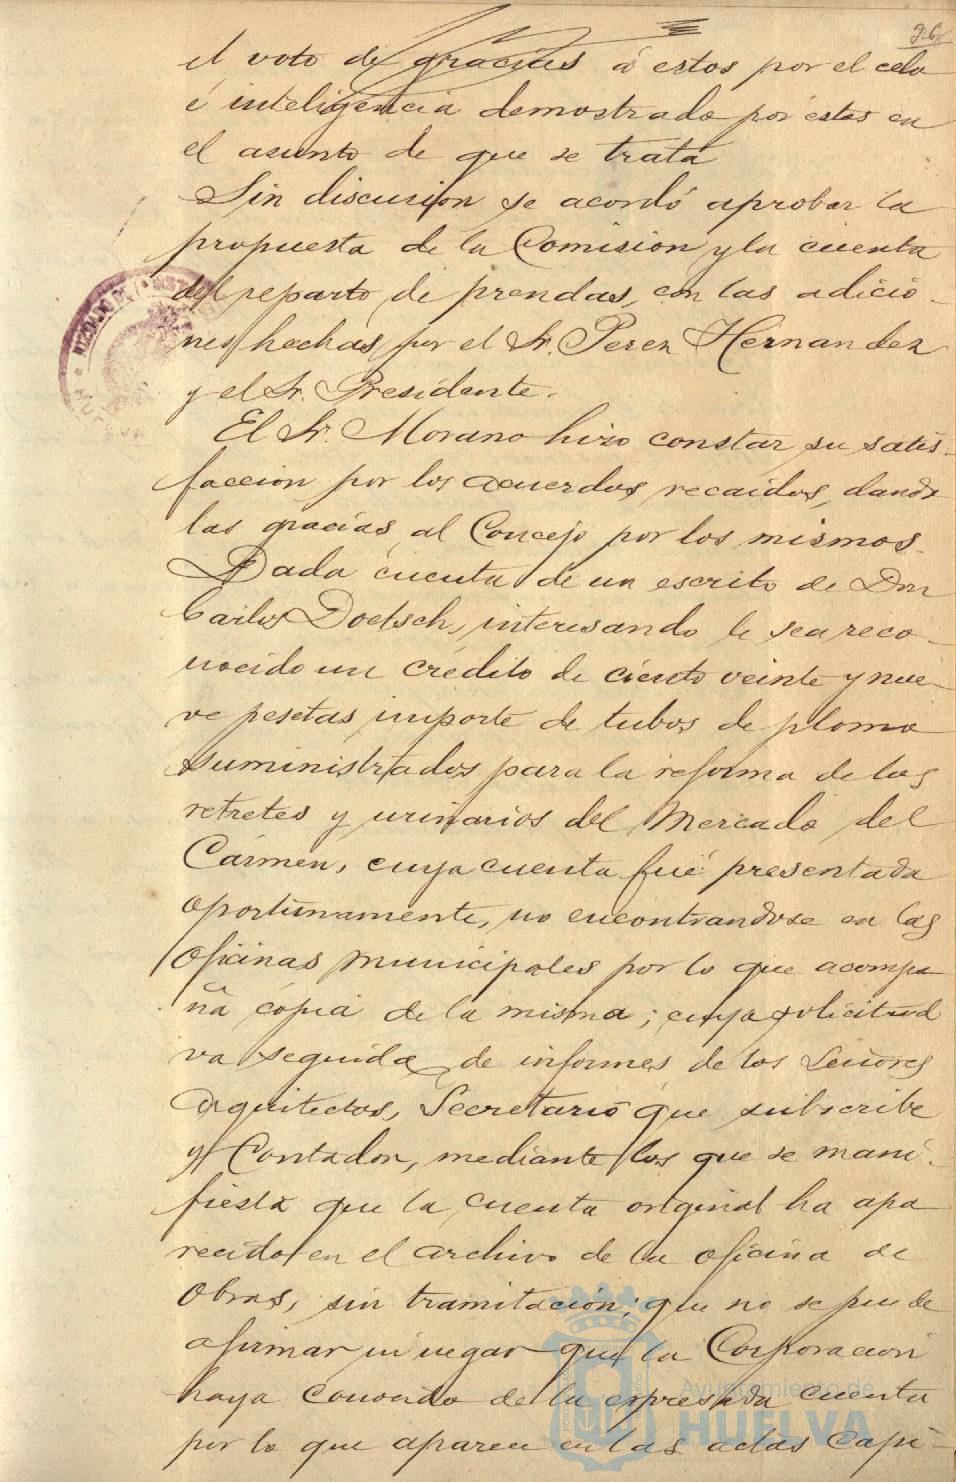 26
el voto de gracias á estos por el celo
é inteligencia demostrado por estos en
el asunto de que se trata
Sin discusion se acordó aprobar la
propuesta de la Comision y la cuenta
del reparto de prendas, con las adicio-
nes hechas por el Sr. Perez Hernandez
y el Sr. Presidente.
El Sr. Morano hizo constar su satis-
faccion por los acuerdos recaidos, dando
las gracias al Concejo por los mismos.
Dada cuenta de un escrito de Don
Carlos Doetsch, interesando le sea reco-
nocido un crédito de ciento veinte y nue-
ve pesetas importe de tubos de plomo
suministrados para la reforma de los
retretes y urinarios del Mercado del
Cármen, cuya cuenta fué presentada
oportunamente, no encontrandose en las
oficinas municipales por lo que acompa
ña copia de la misma; cuya solicitud
va seguida de informes de los Señores
Arquitectos, Secretario que subscribe
y Contador, mediante los que se mani-
fiesta que la cuenta original ha apa
recido en el archivo de la oficina de
Obras, sin tramitación; que no se puede
afirmar ni negar que la Corporacion
haya conocido de la expresada cuenta
por lo que aparece en las actas Capi-
Ayuntamiento de
HUELVA